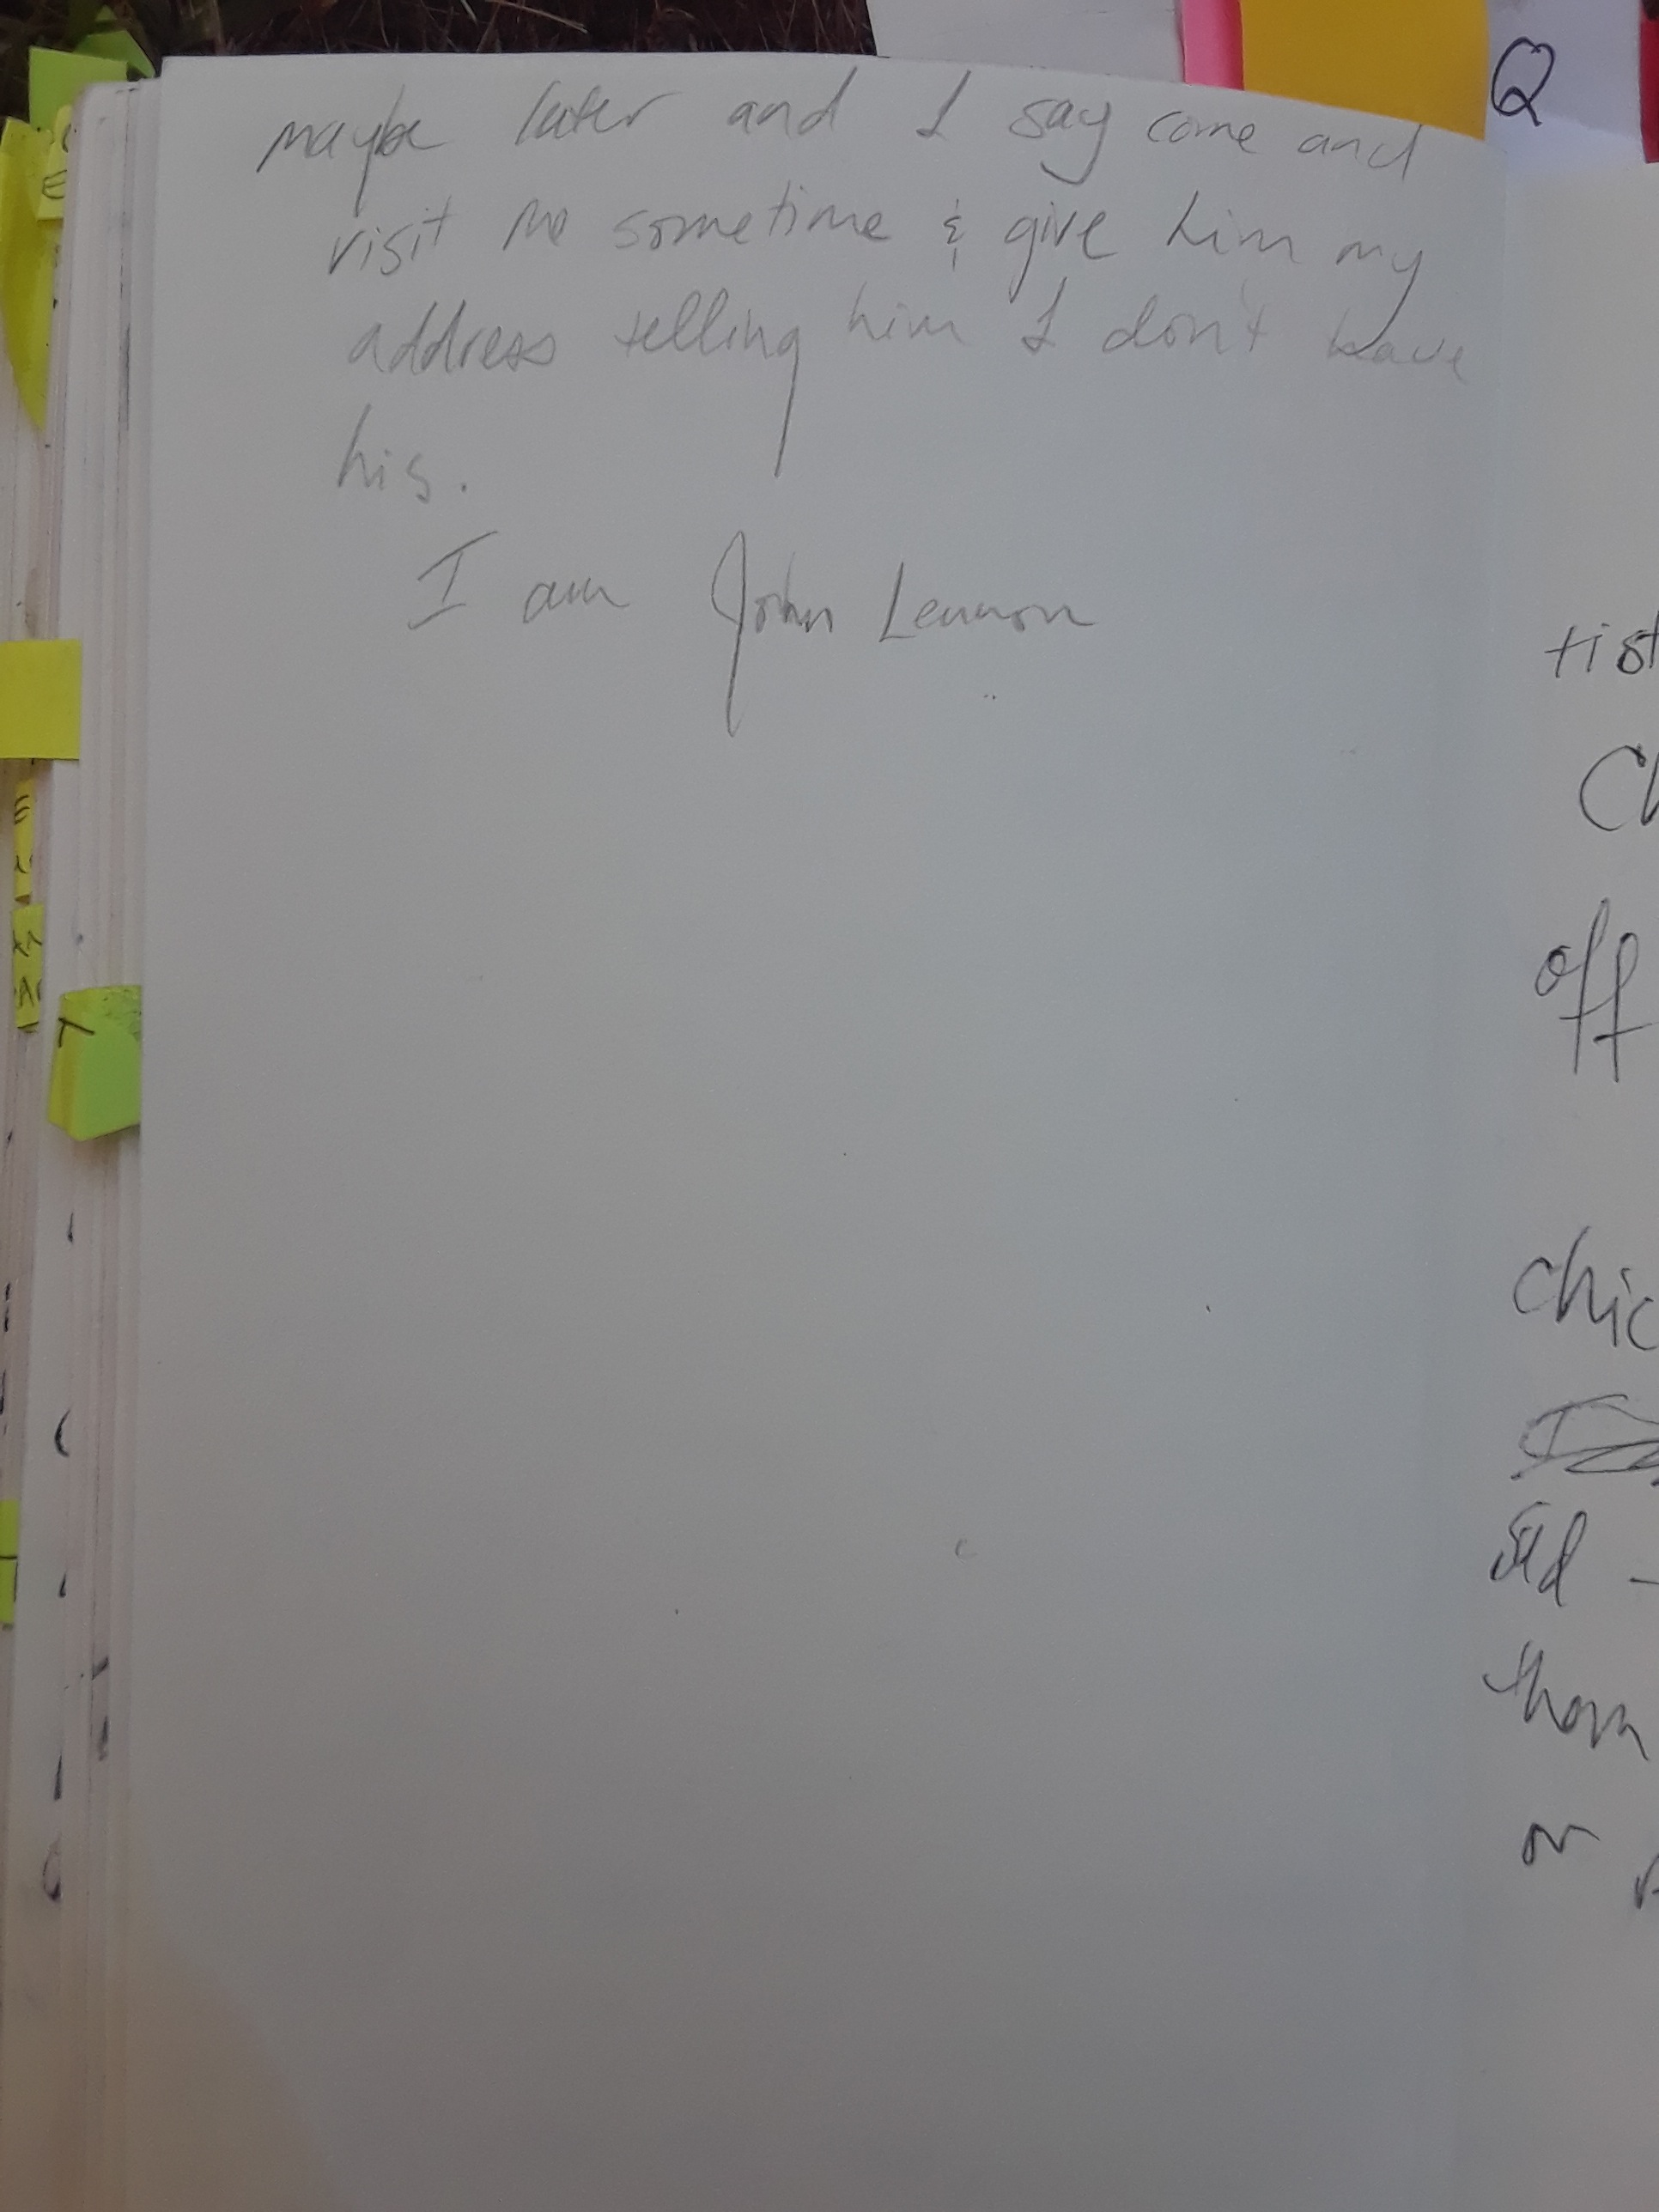 maybe later and I say come and
visit me sometime & give him my
address telling him I don't have
his.
I am John Lennon
Q
tist
Ch
off
chic
or
E